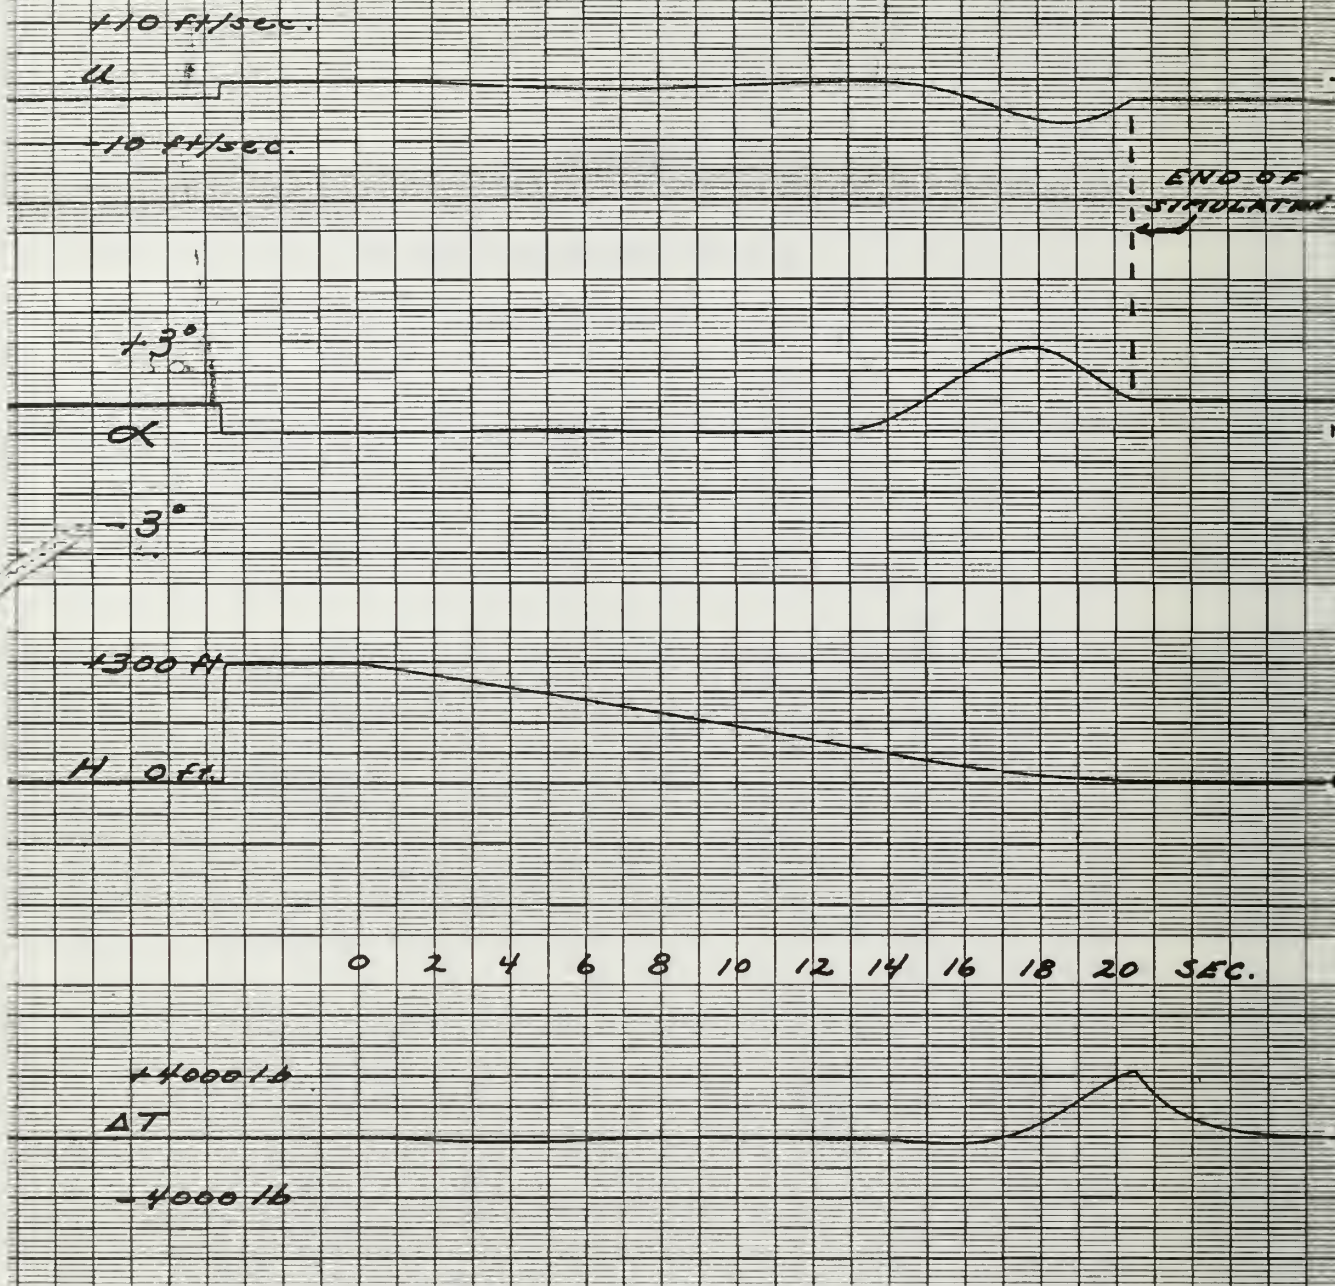 +10 ft/sec.
u
-10 ft/sec.
END OF
SIMULATION
+3°
α
-3°
+300 ft
H 0 ft.
0 2 4 6 8 10 12 14 16 18 20 SEC.
+4000 lb
ΔT
-4000 lb